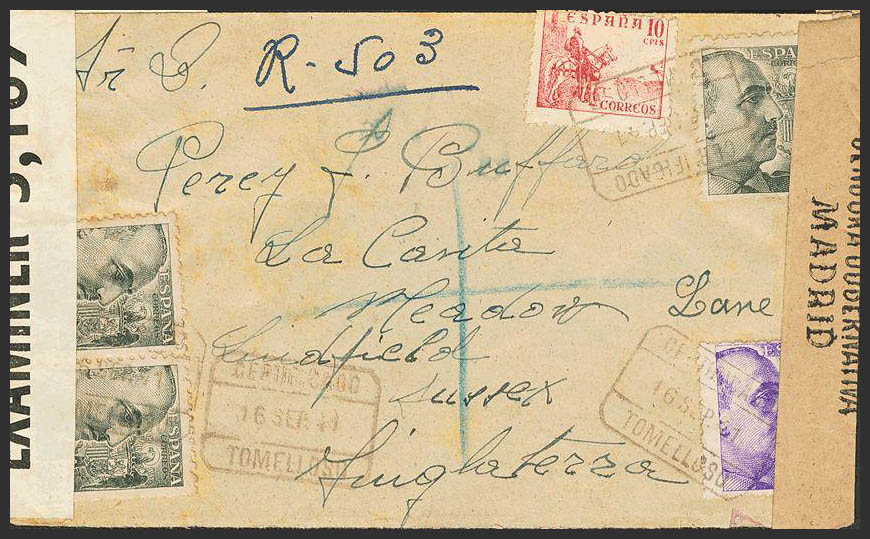 Sr D. R-503
Percy F. Buffard
La Casita
Meadow Lane
Lindfield
Sussex
Inglaterra
ESPAÑA 10
CPTS
CORREOS
ESPAÑA
CORREOS
CERTIFICADO
CENSURA GUBERNATIVA
MADRID
EXAMINER
ESPAÑA
CORREOS
ESPAÑA
CORREOS
CERTIFICADO
16 SEP. 41
TOMELLOSO
CERTIFICADO
16 SEP. 41
TOMELLOSO